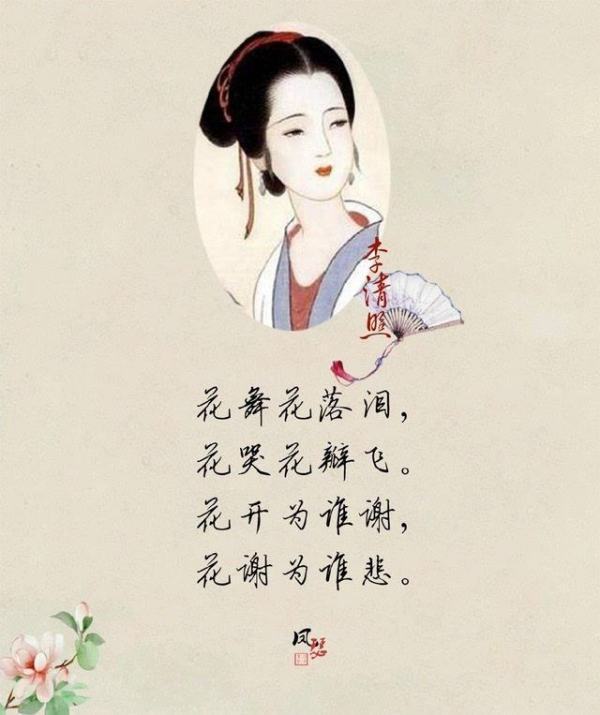 李清照
花舞花落泪，
花哭花瓣飞。
花开为谁谢，
花谢为谁悲。